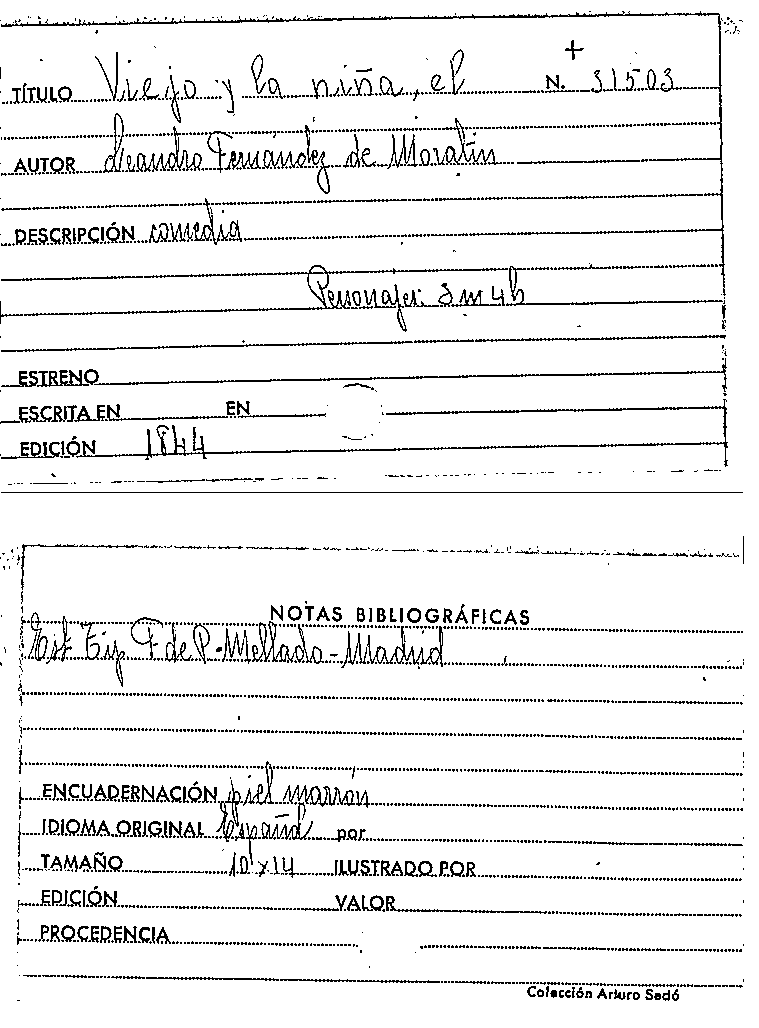 +
TÍTULO Viejo y la niña, el N. 31503
AUTOR Leandro Fernández de Moratín
DESCRIPCIÓN comedia
Personajes: 3 m 4 h
ESTRENO
ESCRITA EN EN
EDICIÓN 1844
NOTAS BIBLIOGRÁFICAS
Est Tip F de P. Mellado - Madrid
ENCUADERNACIÓN piel marrón
IDIOMA ORIGINAL Español por
TAMAÑO 10 x 14 ILUSTRADO POR
EDICIÓN VALOR
PROCEDENCIA
Colección Arturo Sedó